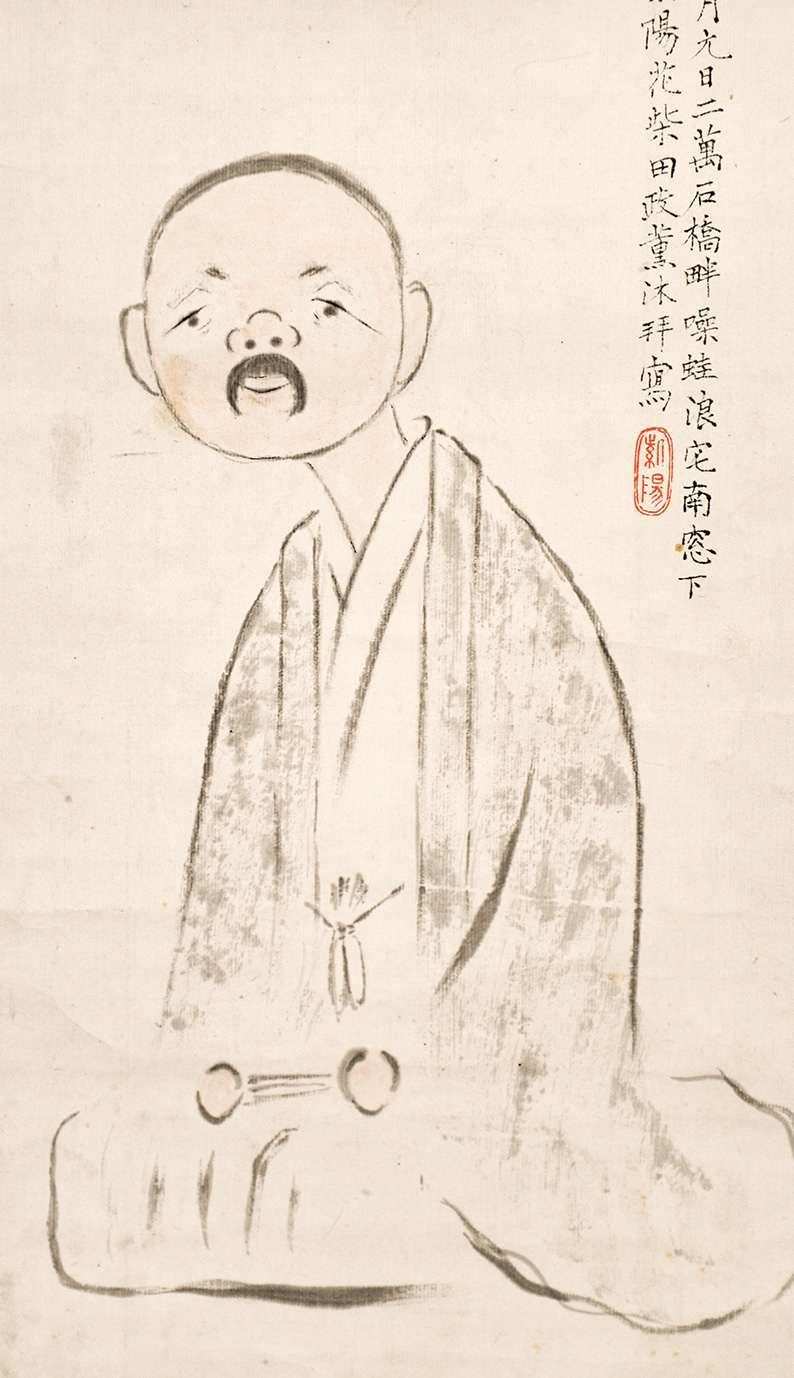 月元日二萬石橋畔噪蛙浪宅南窓下
陽花柴田政薰沐拜寫
紫陽